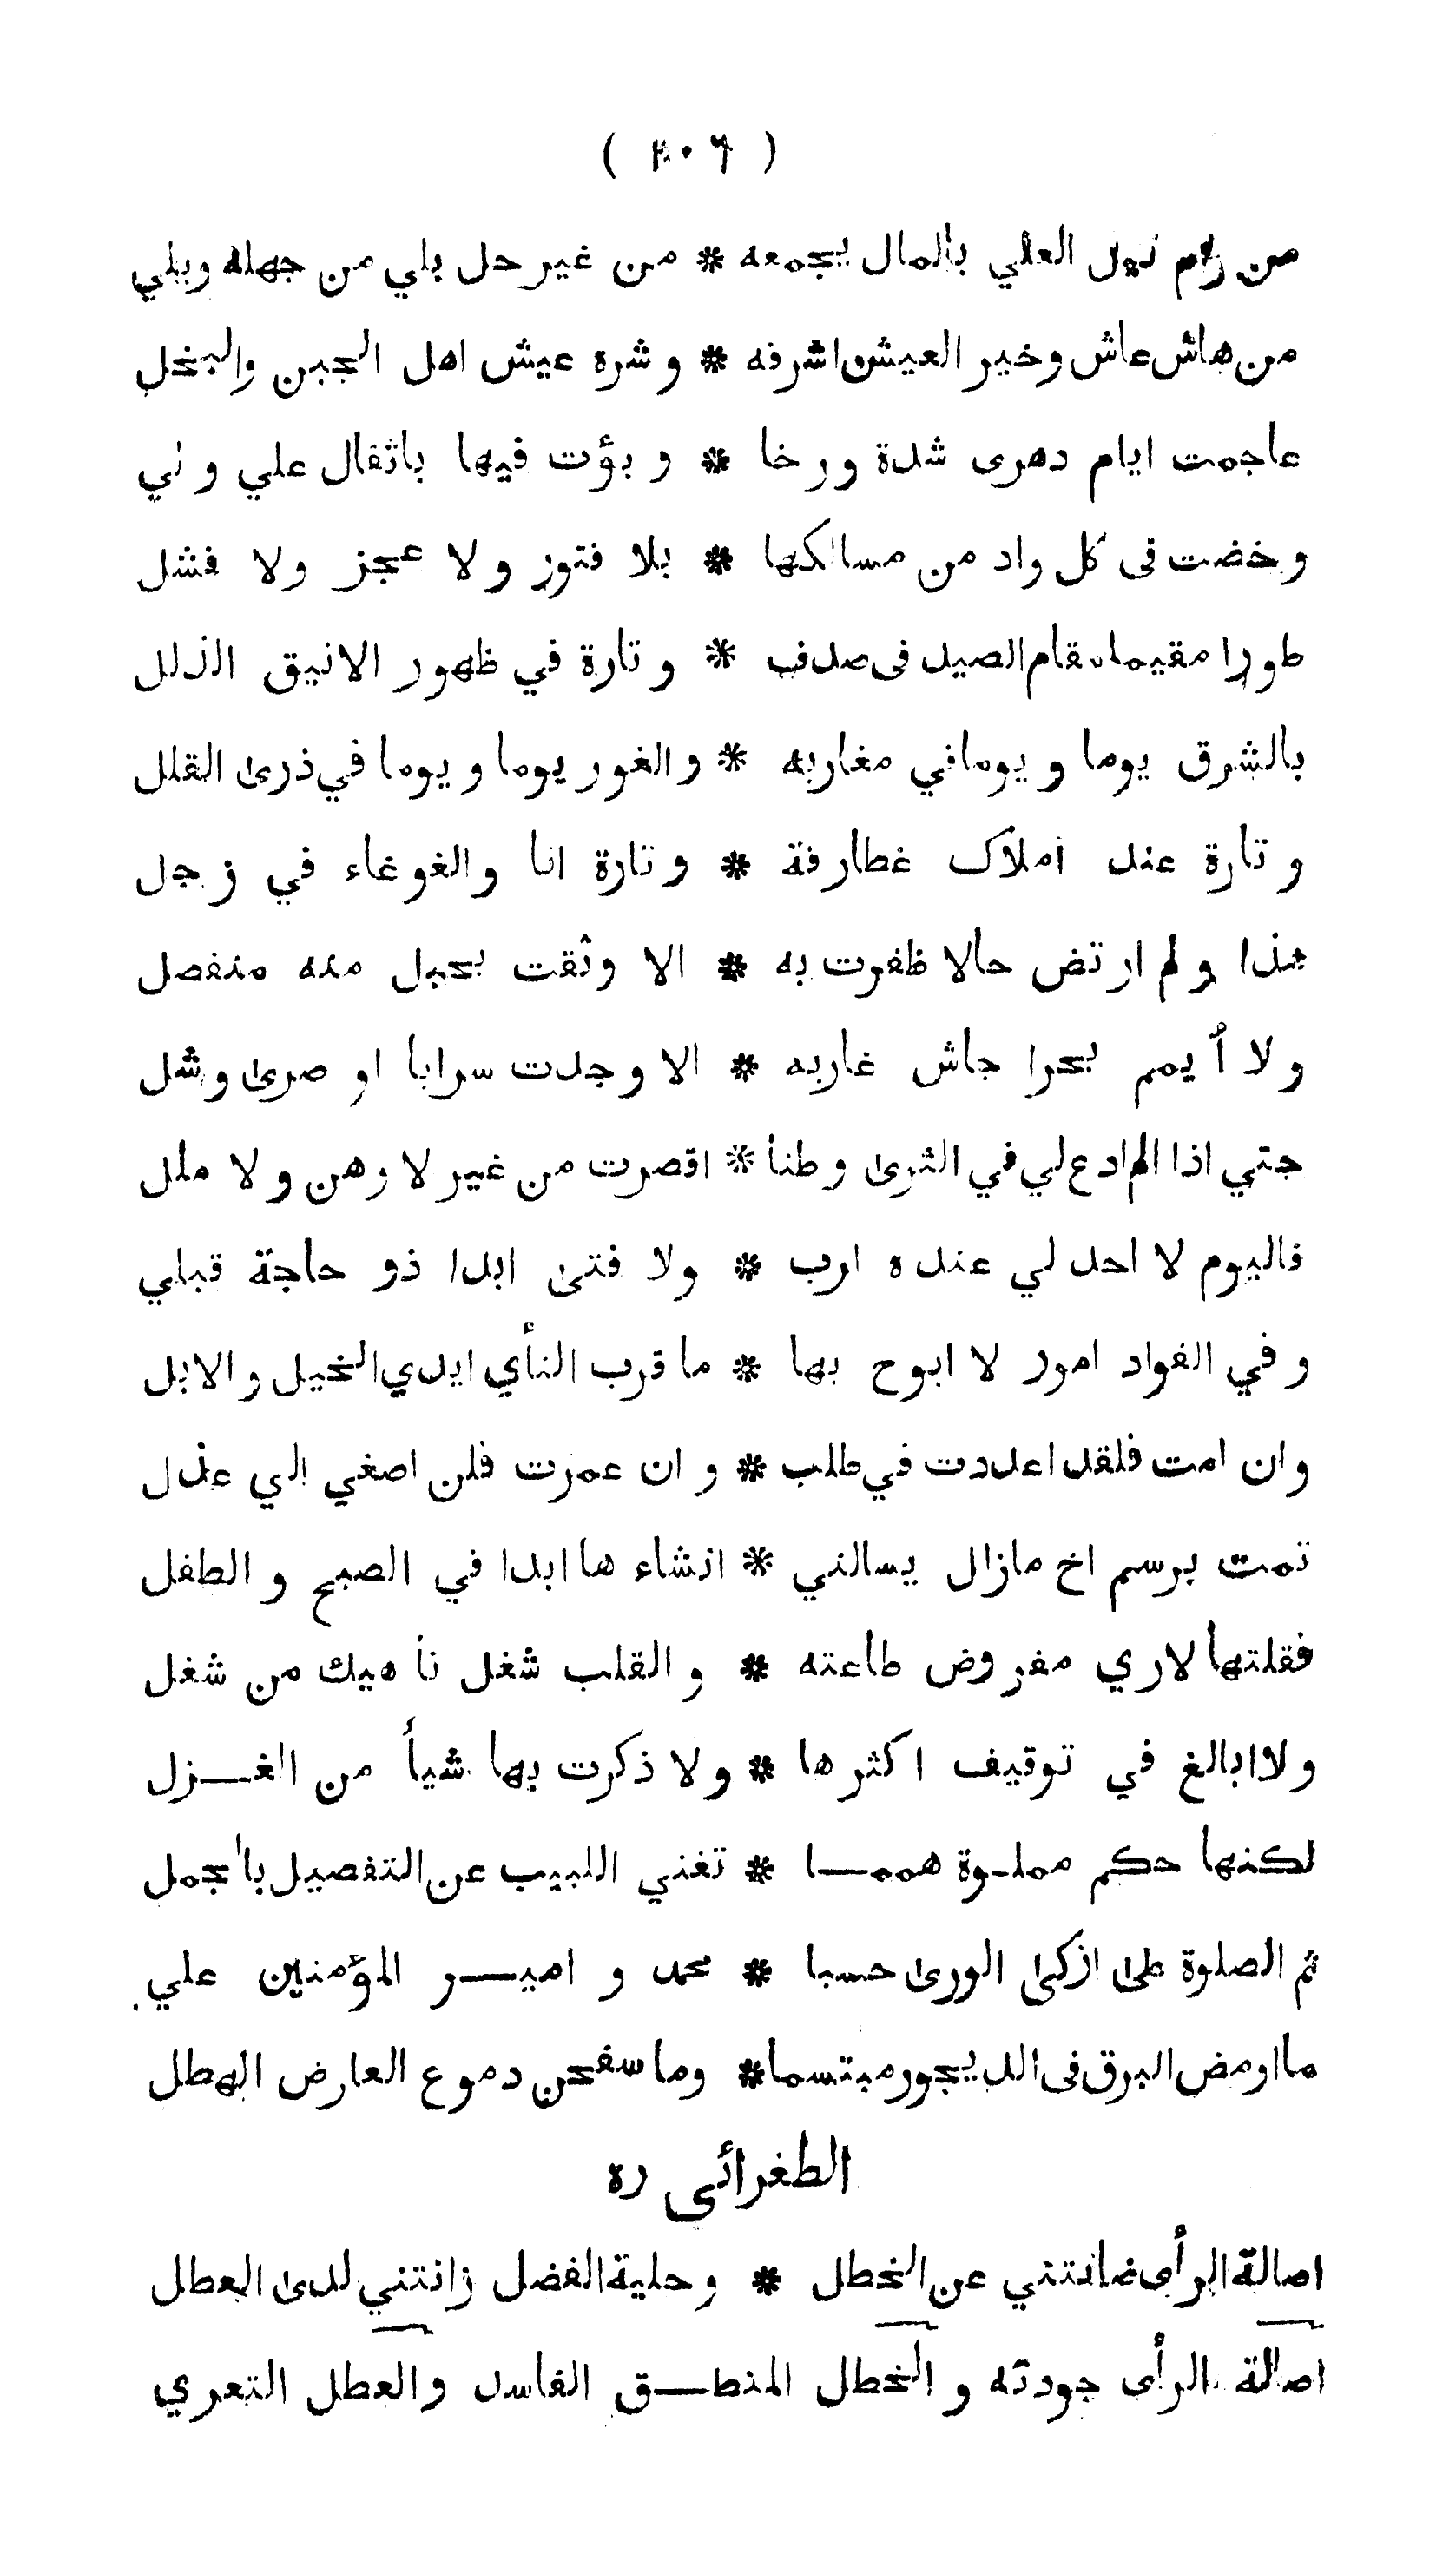 ( ٣٠٦ )
من رام نيل العلي بالمال يجمعه * من غير حل بلي من جهله وبلي
من هاش عاش وخير العيش اشرفه * وشره عيش اهل الجبن والبخل
عاجمت ايام دهرى شدة ورخا * وبؤت فيها باثقال علي ولي
وخضت فى كل واد من مسالكها * بلا فتور ولا عجز ولا فشل
طورا مقيما مقام الصيد فى صدف * وتارة في ظهور الانيق الذلل
بالشرق يوما ويوما في مغاربه * والغور يوما ويوما في ذرى القلل
وتارة عند املاك غطارفة * وتارة انا والغوغاء في زجل
هذا ولم ارتض حالا ظفرت به * الا وثقت بحبل منه منفصل
ولا أيمم بحرا جاش غاربه * الا وجدت سرابا او صرى وشل
حتي اذا لم ادع لي في الثرى وطنا * اقصرت من غير لا وهن ولا ملل
فاليوم لا احد لي عنده ارب * ولا فتى ابدا ذو حاجة قبلي
وفي الفواد امور لا ابوح بها * ما قرب النأي ايدي الخيل والابل
وان امت فلقد اعددت في طلب * وان عمرت فلن اصغي الي عذل
تمت برسم اخ مازال يسالني * انشاء ها ابدا في الصبح والطفل
فقلتها لاري مفروض طاعته * والقلب شغل ناهيك من شغل
ولا ابالغ في توقيف اكثرها * ولا ذكرت بها شيأ من الغـــزل
لكنها حكم مملـوة هممـــا * تغني اللبيب عن التفصيل بالجمل
ثم الصلوة على ازكى الورى حسبا * محمد و اميـــر المؤمنين علي
ما اومض البرق فى الديجور مبتسما * وما سفحن دموع العارض الهطل
الطغرائى ره
اصالة الرأى صانتني عن الخطل * وحلية الفضل زانتني لدى العطل
اصالة الرأى جودته و الخطل المنطـــق الفاسد والعطل التعري